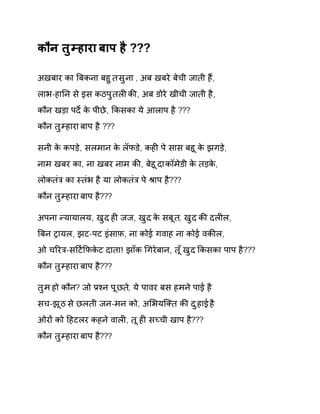 कौन तुम्हारा बाप है ???
अखबार का बिकना बहुतसुना , अब खबरे बेची जाती हैं,
लाभ-हानि से इस कठपुतली की, अब डोरे खीची जाती है,
कौन खड़ा पर्दे के पीछे, किसका ये आलाप है ???
कौन तुम्हारा बाप है ???
सनी के कपडे, सलमान के लॅफडे, कही पे सास बहू के झगडे,
नाम खबर का, ना खबर नाम की, बेहूदा कॉमेडी के तड़के,
लोकतंत्र का स्तंभ है या लोकतंत्र पे श्राप है???
कौन तुम्हारा बाप है???
अपना न्यायालय, खुद ही जज, खुद के सबूत, खुद की दलील,
बिन ट्रायल, झट-पट इंसाफ़, ना कोई गवाह ना कोई वकील,
ओ चरित्र-सर्टिफिकेट दाता! झाँक गिरेबान, तूँ खुद किसका पाप है???
कौन तुम्हारा बाप है???
तुम हो कौन? जो प्रश्न पूछते, ये पावर बस हमने पाई है
सच-झूठ से छलती जन-मन को, अभिव्यक्ति की दुहाई है
ओरों को हिटलर कहने वाली, तू ही सच्ची खाप है???
कौन तुम्हारा बाप है???